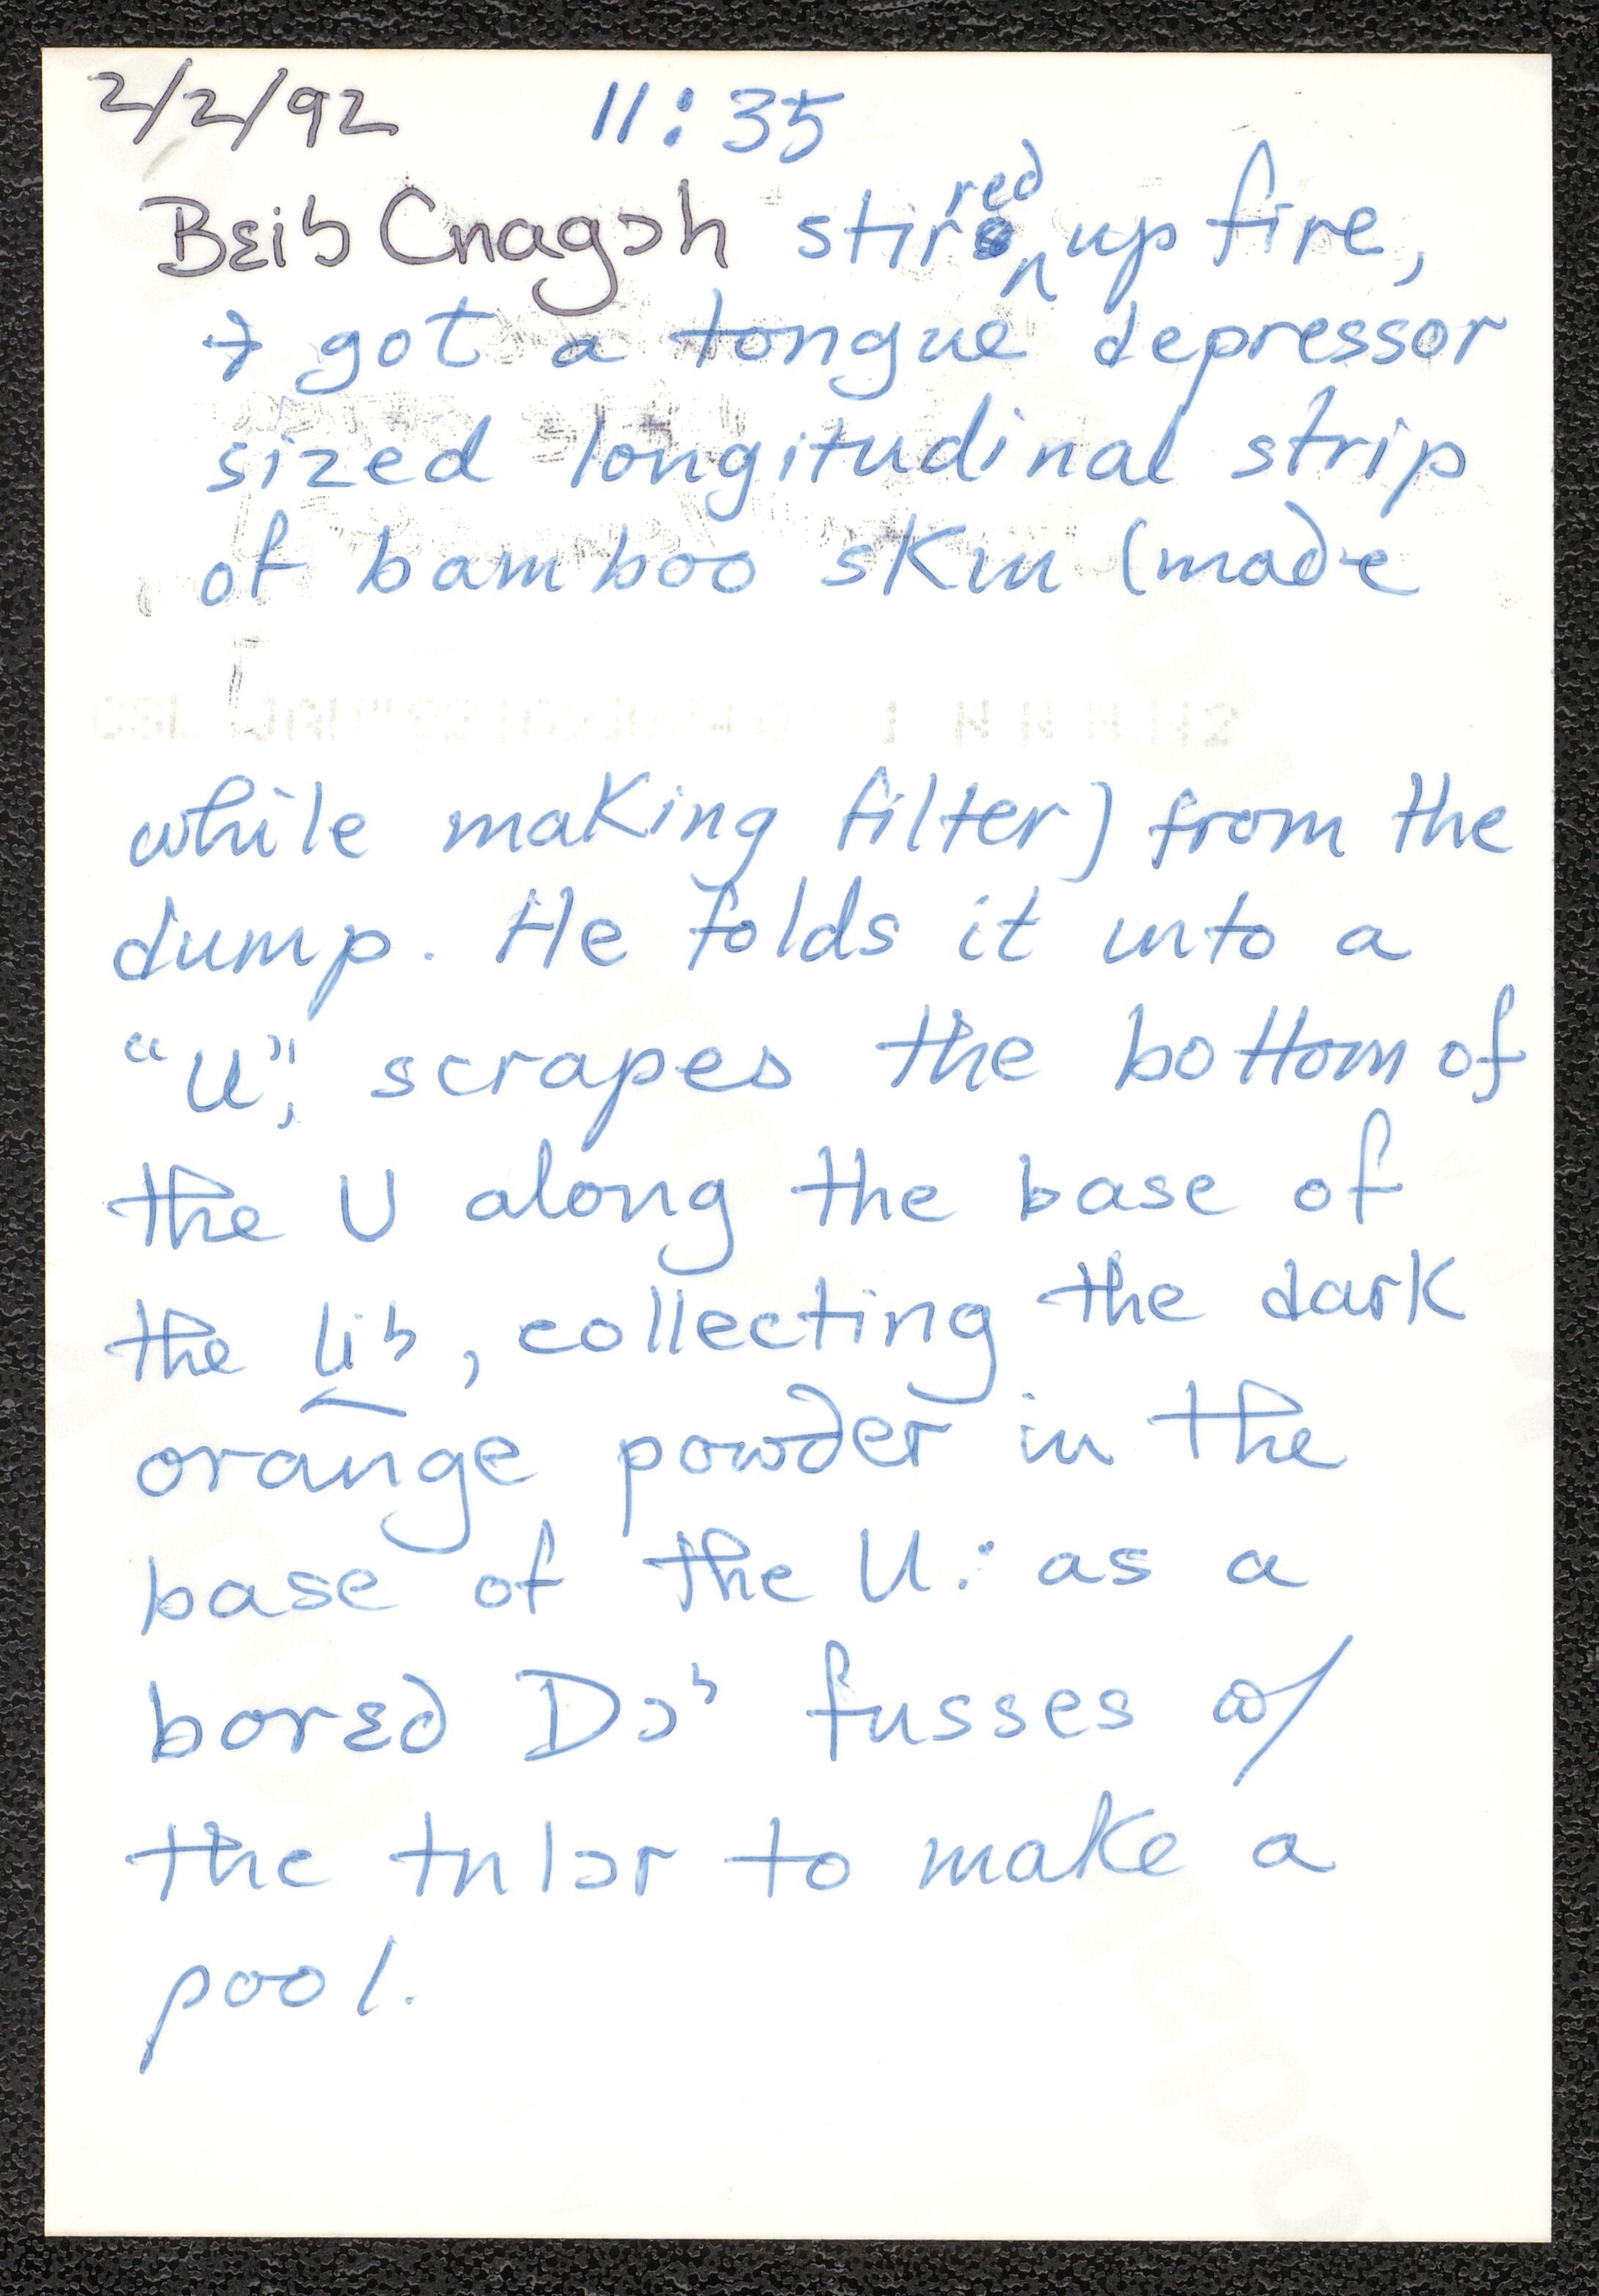 2/2/92 11:35
Bɛiƅ Cnagɔh stirred up fire,
& got a tongue depressor
sized longitudinal strip
of bamboo skin (made
while making filter) from the
dump. He folds it into a
"U", scrapes the bottom of
the U along the base of
the liƅ, collecting the dark
orange powder in the
base of the U: as a
borɛd Dɔƅ fusses w/
the tnlɔr to make a
pool.